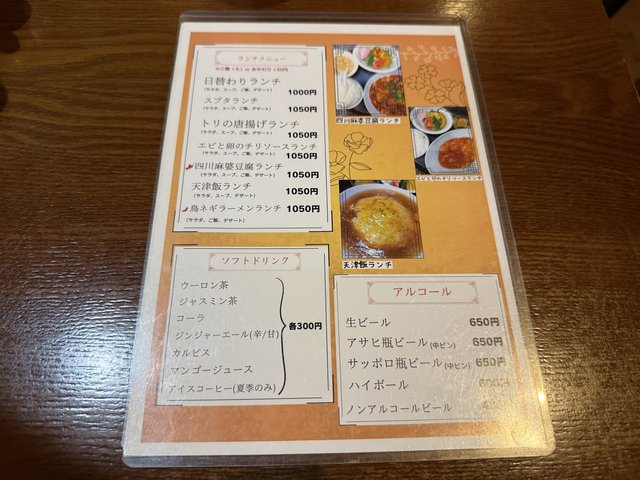 ランチメニュー
※ご飯(大) or おかわり +50円
日替わりランチ
(サラダ、スープ、ご飯、デザート) 1000円
スブタランチ
(サラダ、スープ、ご飯、デザート) 1050円
トリの唐揚げランチ
(サラダ、スープ、ご飯、デザート) 1050円
エビと卵のチリソースランチ
(サラダ、スープ、ご飯、デザート) 1050円
四川麻婆豆腐ランチ
(サラダ、スープ、ご飯、デザート) 1050円
天津飯ランチ
(サラダ、スープ、デザート) 1050円
鳥ネギラーメンランチ 1050円
(サラダ、ご飯、デザート)
四川麻婆豆腐ランチ
エビと卵のチリソースランチ
天津飯ランチ
ソフトドリンク
ウーロン茶
ジャスミン茶
コーラ
ジンジャーエール(辛/甘)
カルピス
マンゴージュース
アイスコーヒー(夏季のみ)
各300円
アルコール
生ビール 650円
アサヒ瓶ビール(中ビン) 650円
サッポロ瓶ビール(中ビン) 650円
ハイボール
ノンアルコールビール